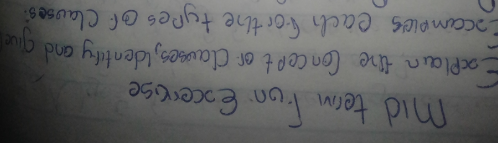 Mid term Fun Excercise
Explain the Concept of Clauses, identify and give
Examples each for the types of Clauses.